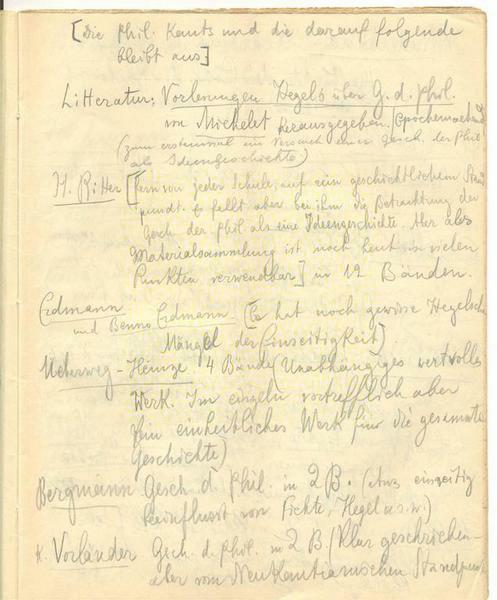 [Die Phil. Kants und die darauf folgende
bleibt aus]
Litteratur: Vorlesungen Hegels über G. d. Phil.
von Michelet herausgegeben. Epochemachend
(zum erstenmal ein Versuch einer Gesch. der Phil
als Ideengeschichte)
H. Ritter [fern von jeder Schule, auf ein geschichtlichem Stand
punct. Es fellt aber bei ihm die Betrachtung der
Gesch der Phil als eine Ideengeschichte. Aber als
Materialsammlung ist noch heut in vielen
Punkten verwendbar] in 12 Bänden.
Erdmann
und Benno Erdmann. (Es hat noch gewisse Hegelsche
Mängel der Einseitigkeit)
Ueberweg-Heinze 4 Bände (Unabhängiges wertvolles
Werk. Im einzeln vortrefflich aber
ein einheitliches Werk für die gesammte
Geschichte)
Bergmann Gesch d. Phil. in 2 B. (etwas einseitig
beeinflusst von Fichte, Hegel u.s.w.)
K. Vorländer Gesch. d. Phil. in 2 B. (Klar geschrieben
aber vom Neukantianischen Standpunct